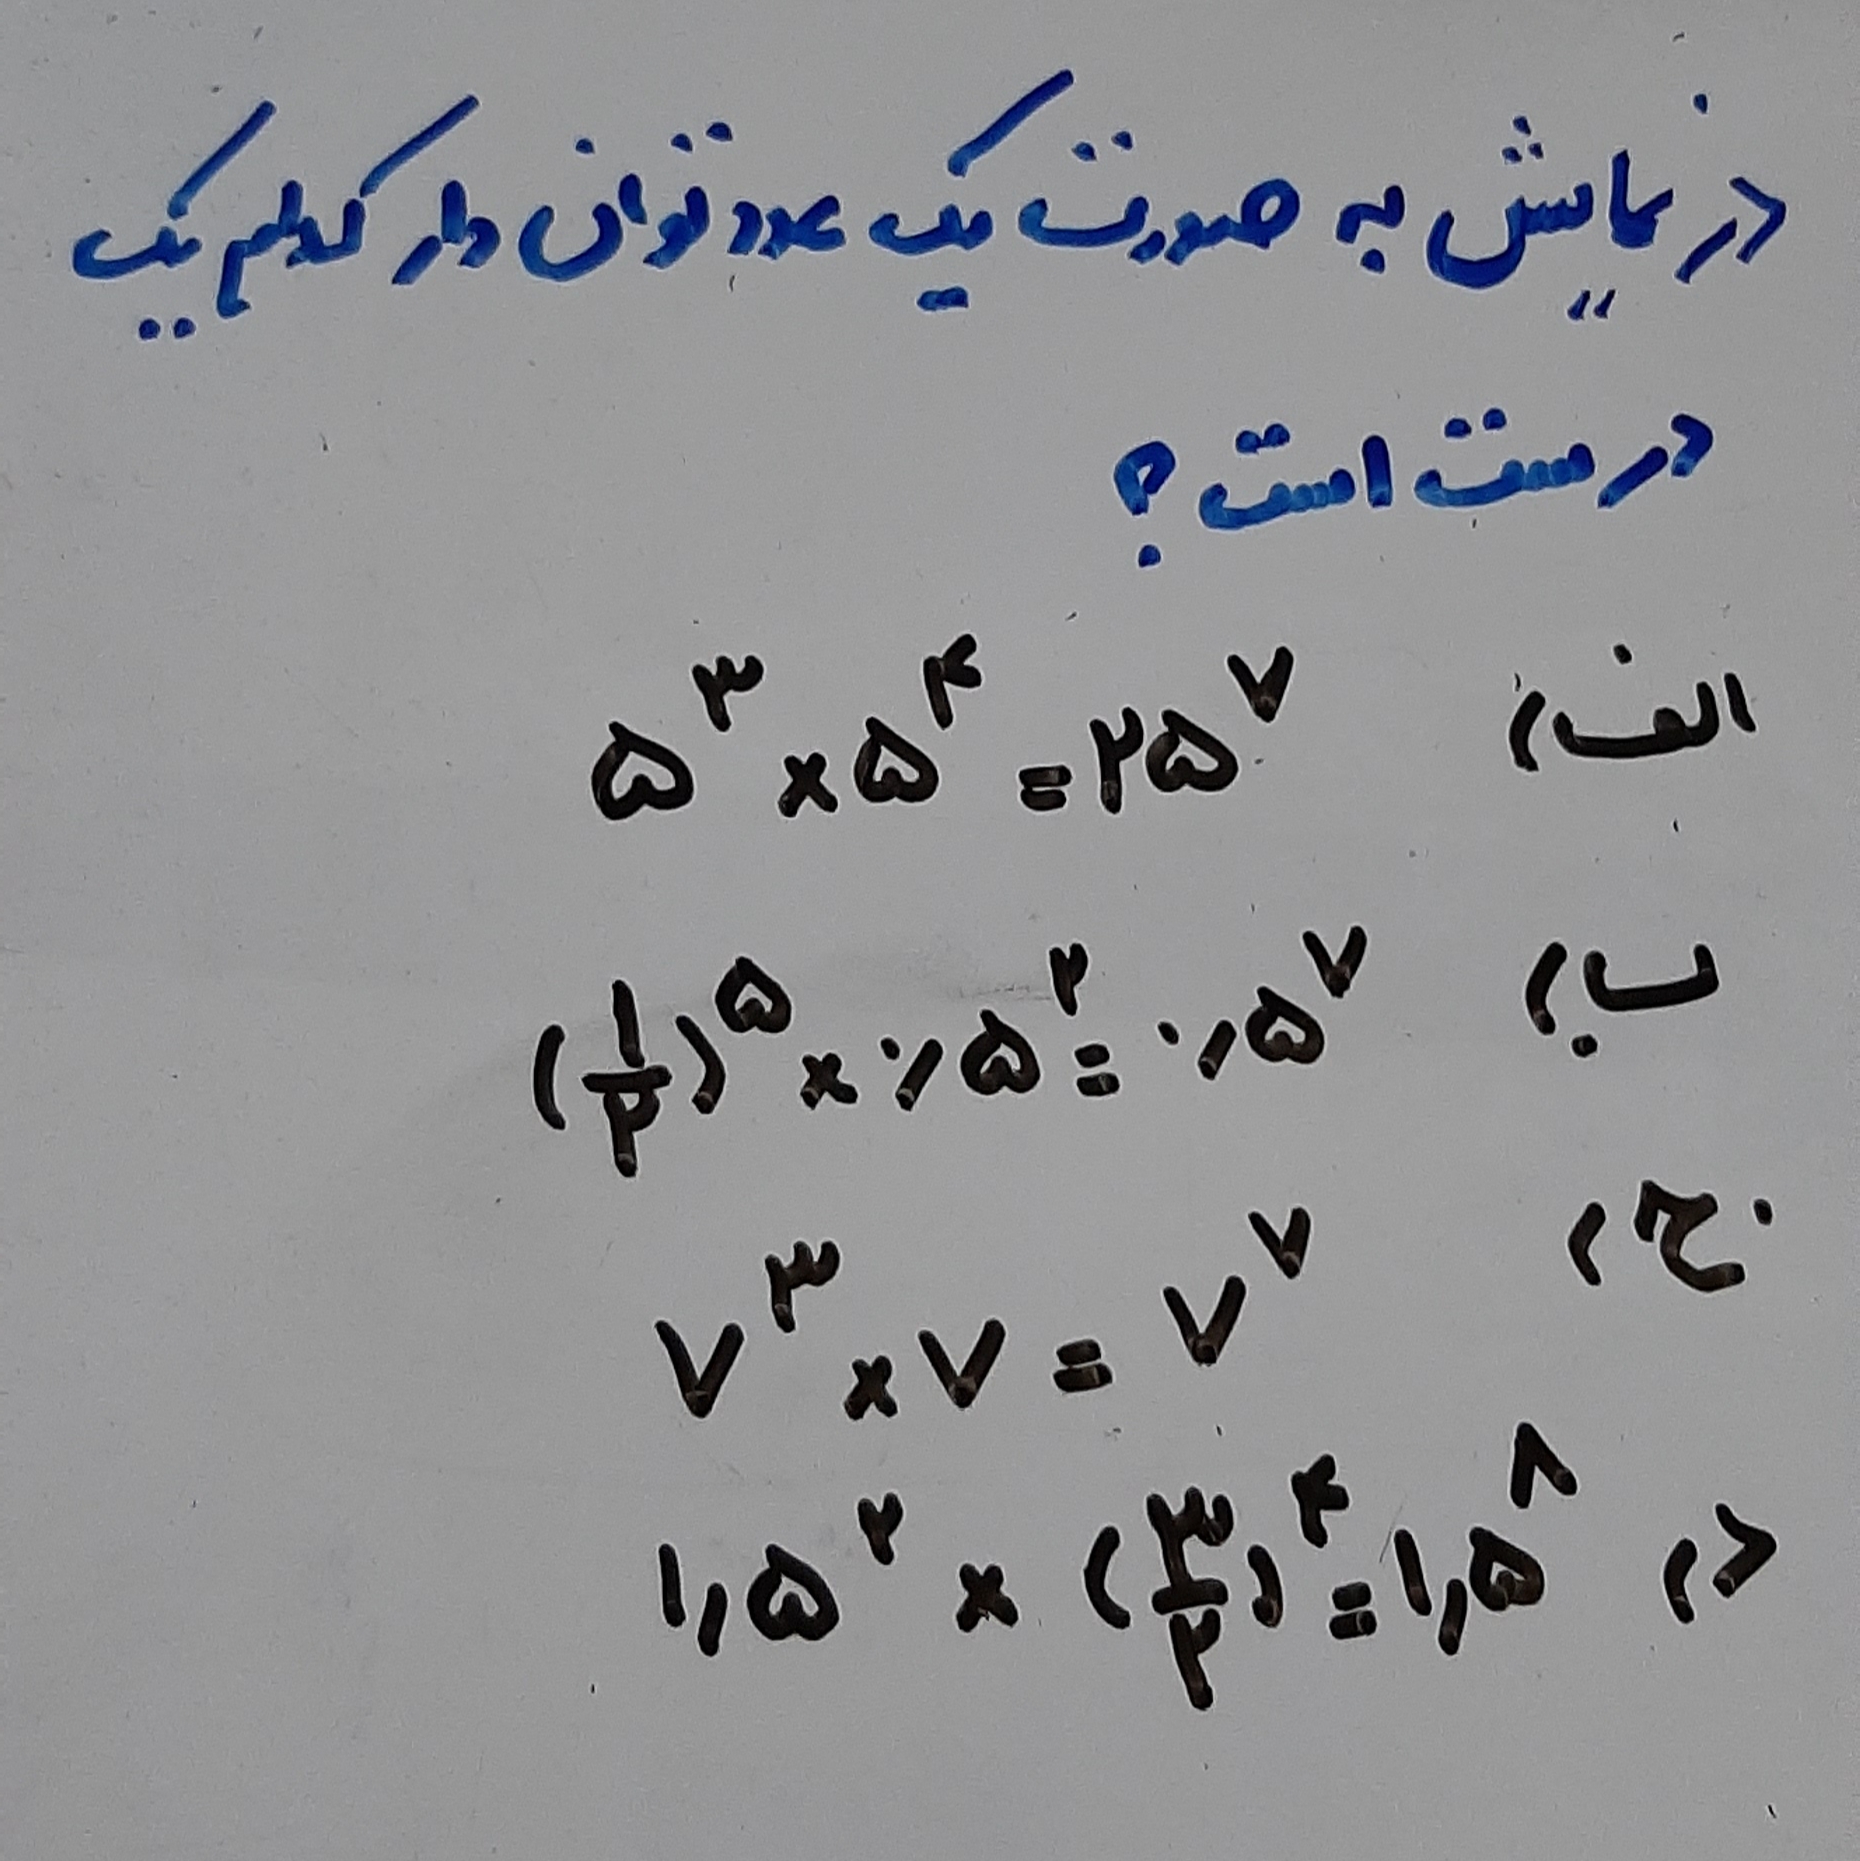 در نمایش به صورت یک عدد توان دار کدام یک
درست است؟
الف) ۵^۳ × ۵^۴ = ۲۵^۷
ب) (۱/۲)^۵ × ۰٫۵^۲ = ۰٫۵^۷
ج) ۷^۳ × ۷ = ۷^۷
د) ۱٫۵^۲ × (۳/۲)^۴ = ۱٫۵^۸